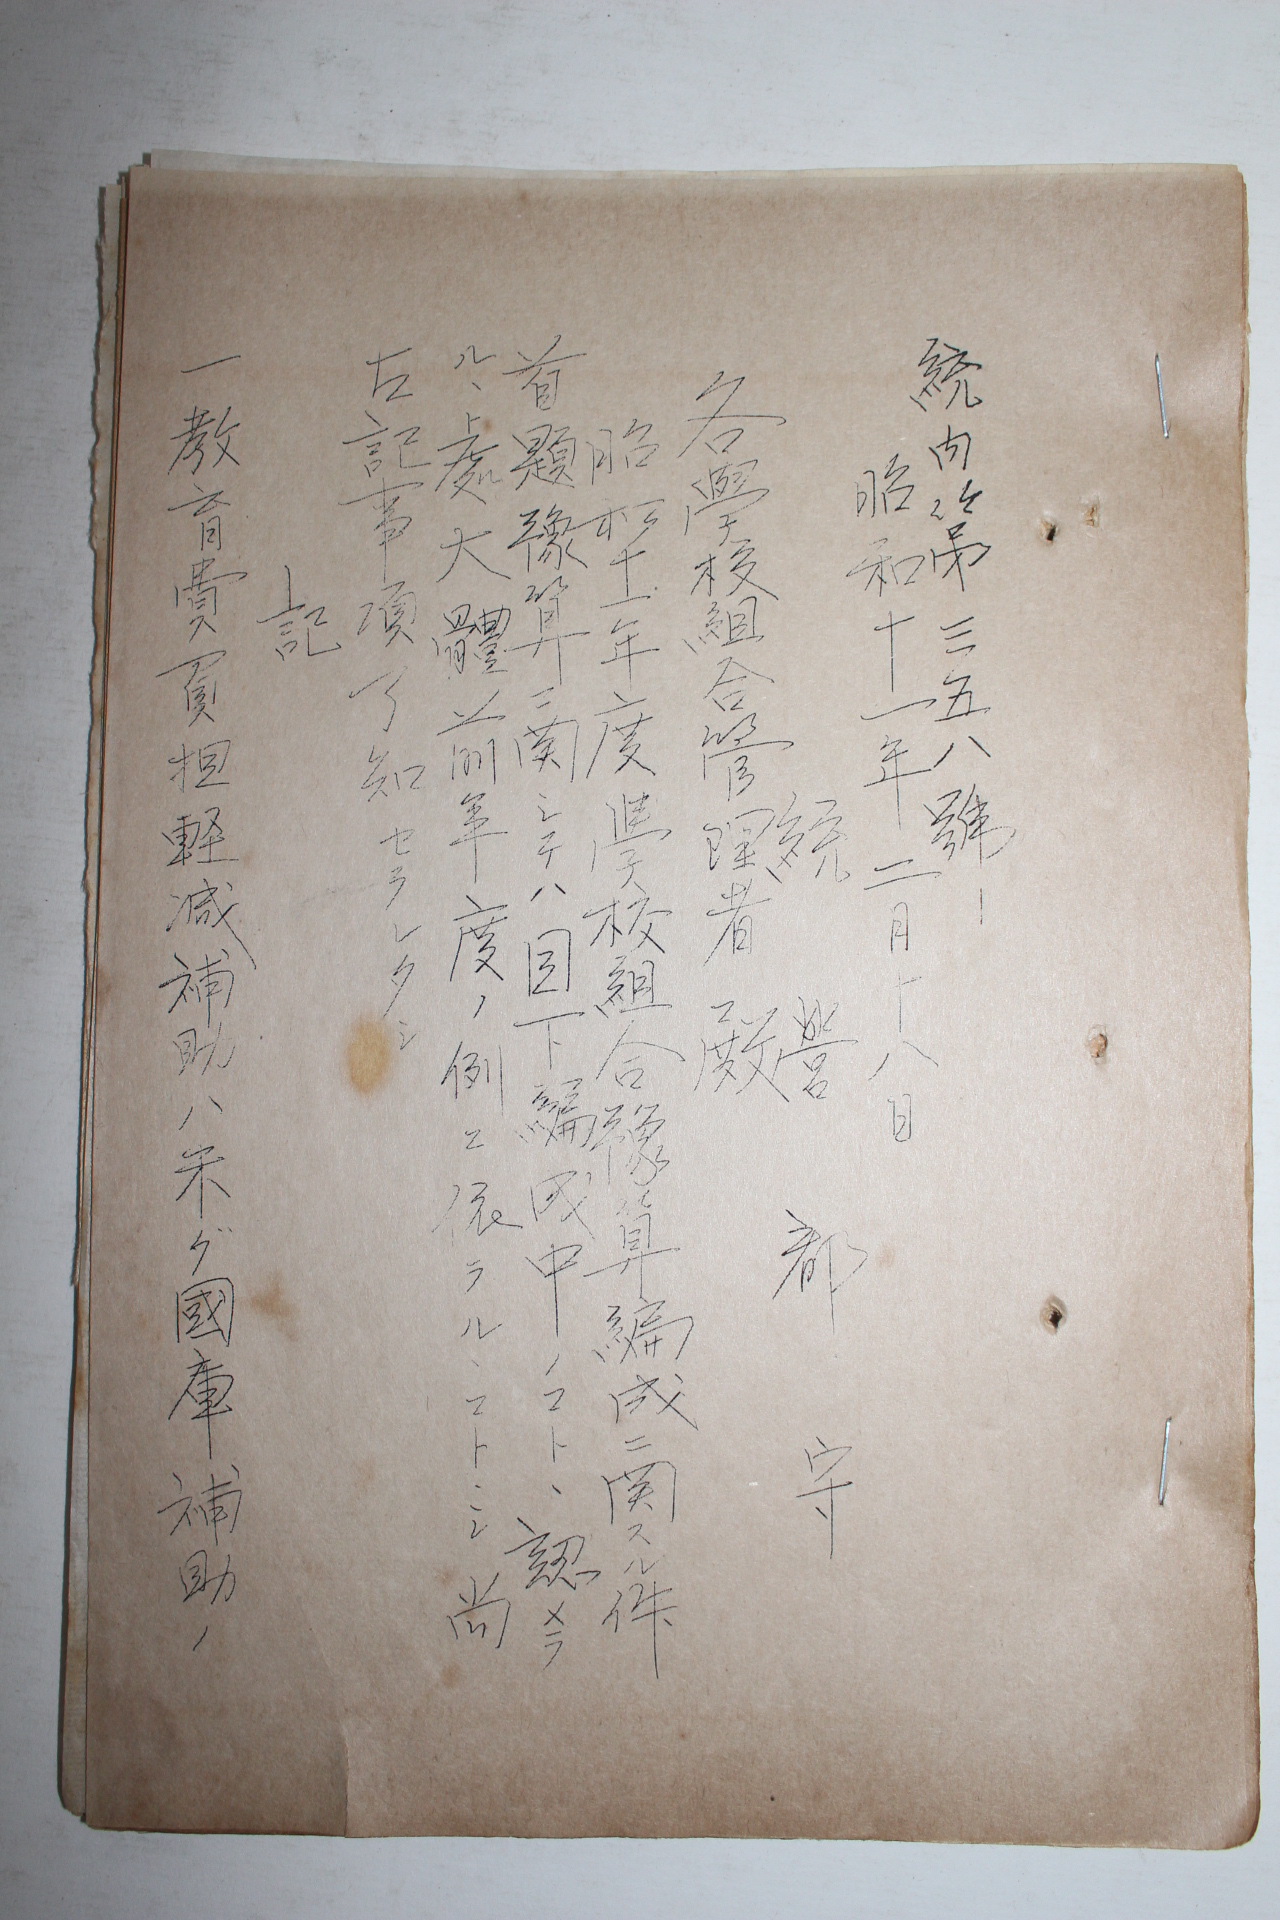 統内第三五八號ノ一
昭和十一年二月十八日
統營郡守
各學校組合管理者殿
昭和十一年度學校組合豫算編成ニ関スル件
首題豫算ニ関シテハ目下編成中ノコトヽ認メラ
ルヽ處大體前年度ノ例ニ依ラルヽコトヽシ尚
左記事項了知セラレタシ
記
一教育費負担軽減補助ハ未ダ國庫補助ノ